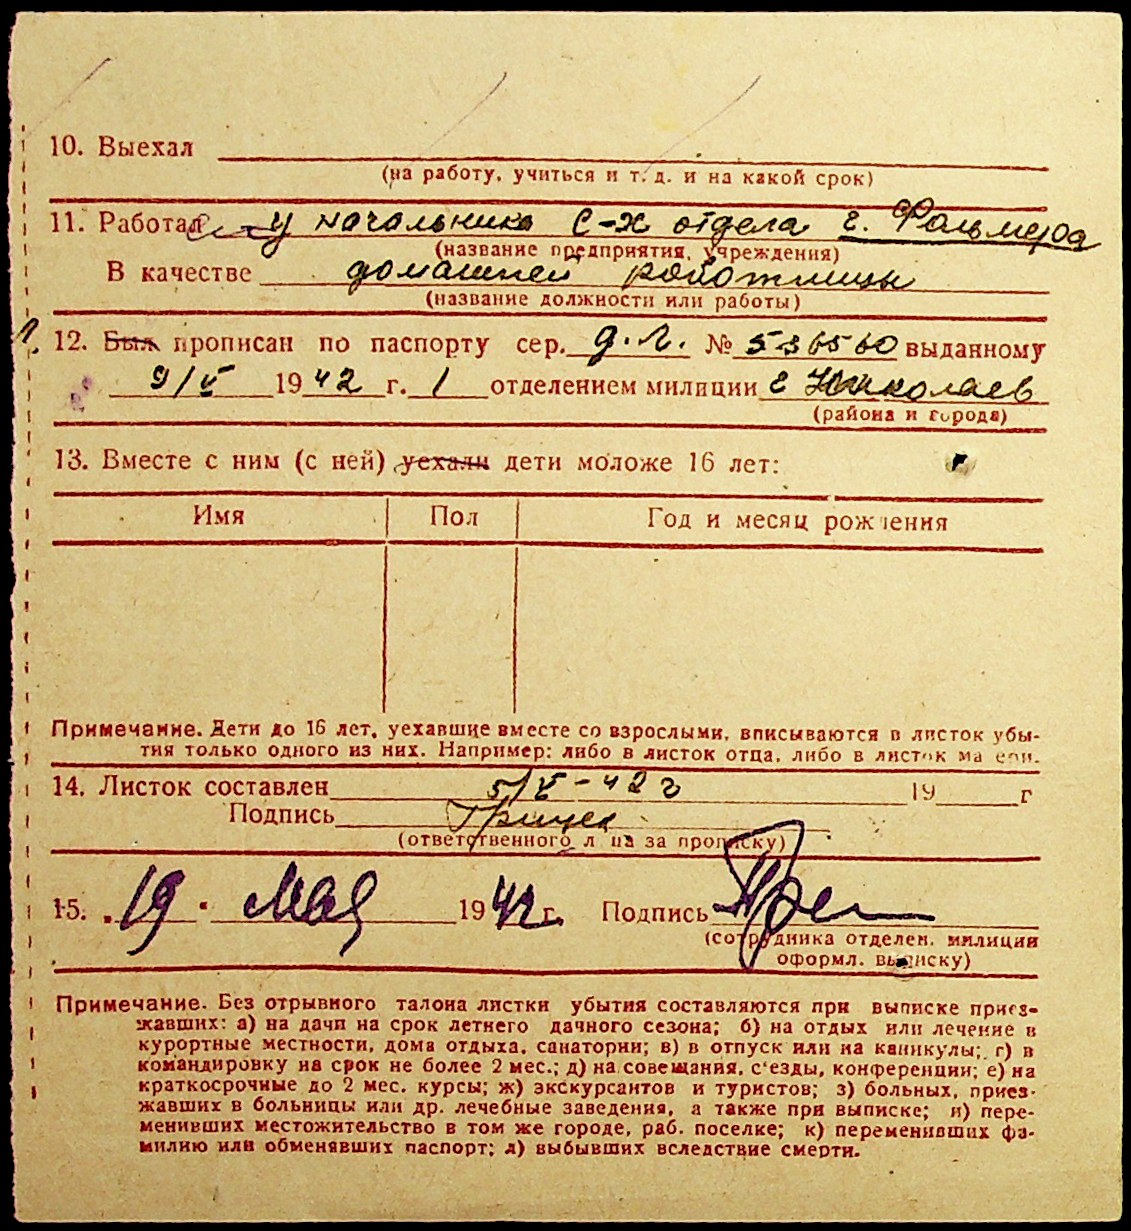 10. Выехал
(на работу, учиться и т. д. и на какой срок)
11. Работал у начальника с-х отдела г. Фольмера
(название предприятия, учреждения)
В качестве домашней работницы
(название должности или работы)
12. Был прописан по паспорту сер. № 536560 выданному
9/V 1942 г. 1 отделением милиции г Николаев
(района и города)
13. Вместе с ним (с ней) уехали дети моложе 16 лет:
Имя Пол Год и месяц рождения
Примечание. Дети до 16 лет, уехавшие вместе со взрослыми, вписываются в листок убы-
тия только одного из них. Например: либо в листок отца, либо в листок матери.
14. Листок составлен 5/V-42 г 19 г
Подпись
(ответственного лица за прописку)
15. 19 Мая 1942 г. Подпись
(сотрудника отделен. милиции
оформл. выписку)
Примечание. Без отрывного талона листки убытия составляются при выписке приез-
жавших: а) на дачи на срок летнего дачного сезона; б) на отдых или лечение в
курортные местности, дома отдыха, санатории; в) в отпуск или на каникулы; г) в
командировку на срок не более 2 мес.; д) на совещания, с'езды, конференции; е) на
краткосрочные до 2 мес. курсы; ж) экскурсантов и туристов; з) больных, приез-
жавших в больницы или др. лечебные заведения, а также при выписке; и) пере-
менивших местожительство в том же городе, раб. поселке; к) переменивших фа-
милию или обменявших паспорт; л) выбывших вследствие смерти.